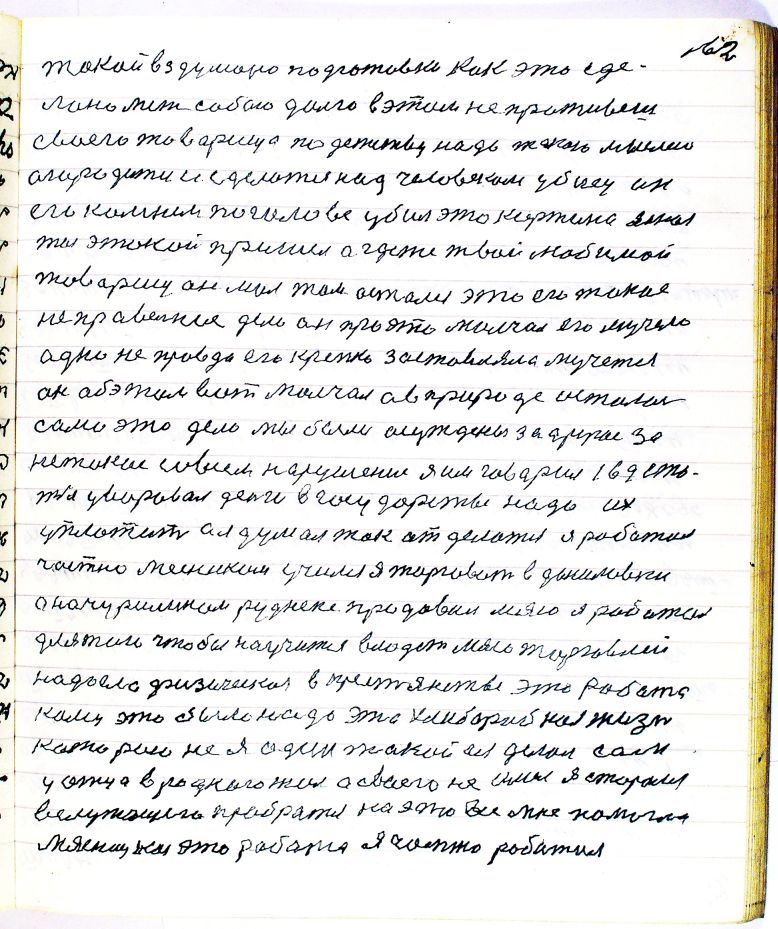 №2
такой вздумано подготовка как это сде-
лано меж собою долго в этом не противеш
своего товарища по детству надо такою мыслию
огородити и сделатся над человеком убицу он
его камнем по голове убил это картина
такой пришел а где же твой любимой
товарищ он мол там остался это его такое
неправельное дело он про это молчал его мучело
одно не провда его крепко заставляла мучется
он об этом вот молчал а в природе осталось
само это дело мы были осуждены за другое за
нетакое совсем нарушение я им говарил
уваровал денги в государстве надо их
уплотить а я думал как отделатся я работал
частно месником учился торговат в даниловки
а на чурилином руднеке продовал мясо я работал
для того чтобы научится владет мясо торговлей
надоела физическоя в крестянстве это работа
кому это было надо эта хлибаробноя жизн
которою не я один такой ея делал сам
у отца в родного жил а своего не имел я старолся
в служащего пробратся на это все мне помогла
мясницкоя это работа я частно работал